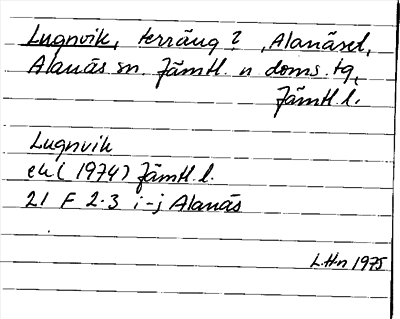 Lugnvik, terräng? , Alanäset,
Alanäs sn. Jämtl. n doms. tg,
Jämtl. l.
Lugnvik
ek (1974) Jämtl. l.
21 F 2-3 i-j Alanäs
L.H-n 1975